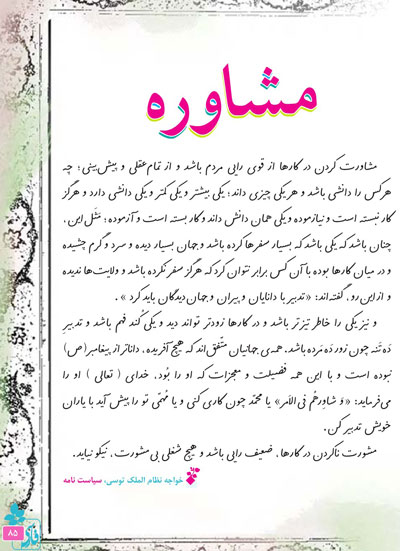 مشاوره
مشاورت کردن در کارها از قوی رایی مردم باشد و از تمام عقلی و پیش بینی؛ چه
هر کس را دانشی باشد و هر یکی چیزی داند؛ یکی بیشتر و یکی کمتر و یکی دانشی دارد و هرگز
کار نبسته است و نیازموده و یکی همان دانش داند و کار بسته است و آزموده؛ مثَل این،
چنان باشد که یکی باشد که بسیار سفرها کرده باشد و جهان بسیار دیده و سرد و گرم چشیده
و در میان کارها بوده با آن کس برابر نتوان کرد که هرگز سفر نکرده باشد و ولایت‌ها ندیده
و از این رو، گفته‌اند: «تدبیر با دانایان و پیران و جهان دیدگان باید کرد».
و نیز یکی را خاطر تیزتر باشد و در کارها زودتر تواند دید و یکی کُند فهم باشد و تدبیر
دَه تَنه چون زور دَه مَرده باشد. همه‌ی جهانیان متّفق‌اند که هیچ آفریده، داناتر از پیغامبر(ص)
نبوده است و با این همه فضیلت و معجزات که او را بُود، خدای ( تعالی ) او را
می‌فرماید: «وَ شاوِرهُم فی الاَمر» یا محمّد چون کاری کنی و یا مُهمّی تو را پیش آید با یاران
خویش تدبیر کن.
مشورت ناکردن در کارها، ضعیف رایی باشد و هیچ شغلی بی مشورت، نیکو نیاید.
خواجه نظام الملک توسی، سیاست نامه
۸۵